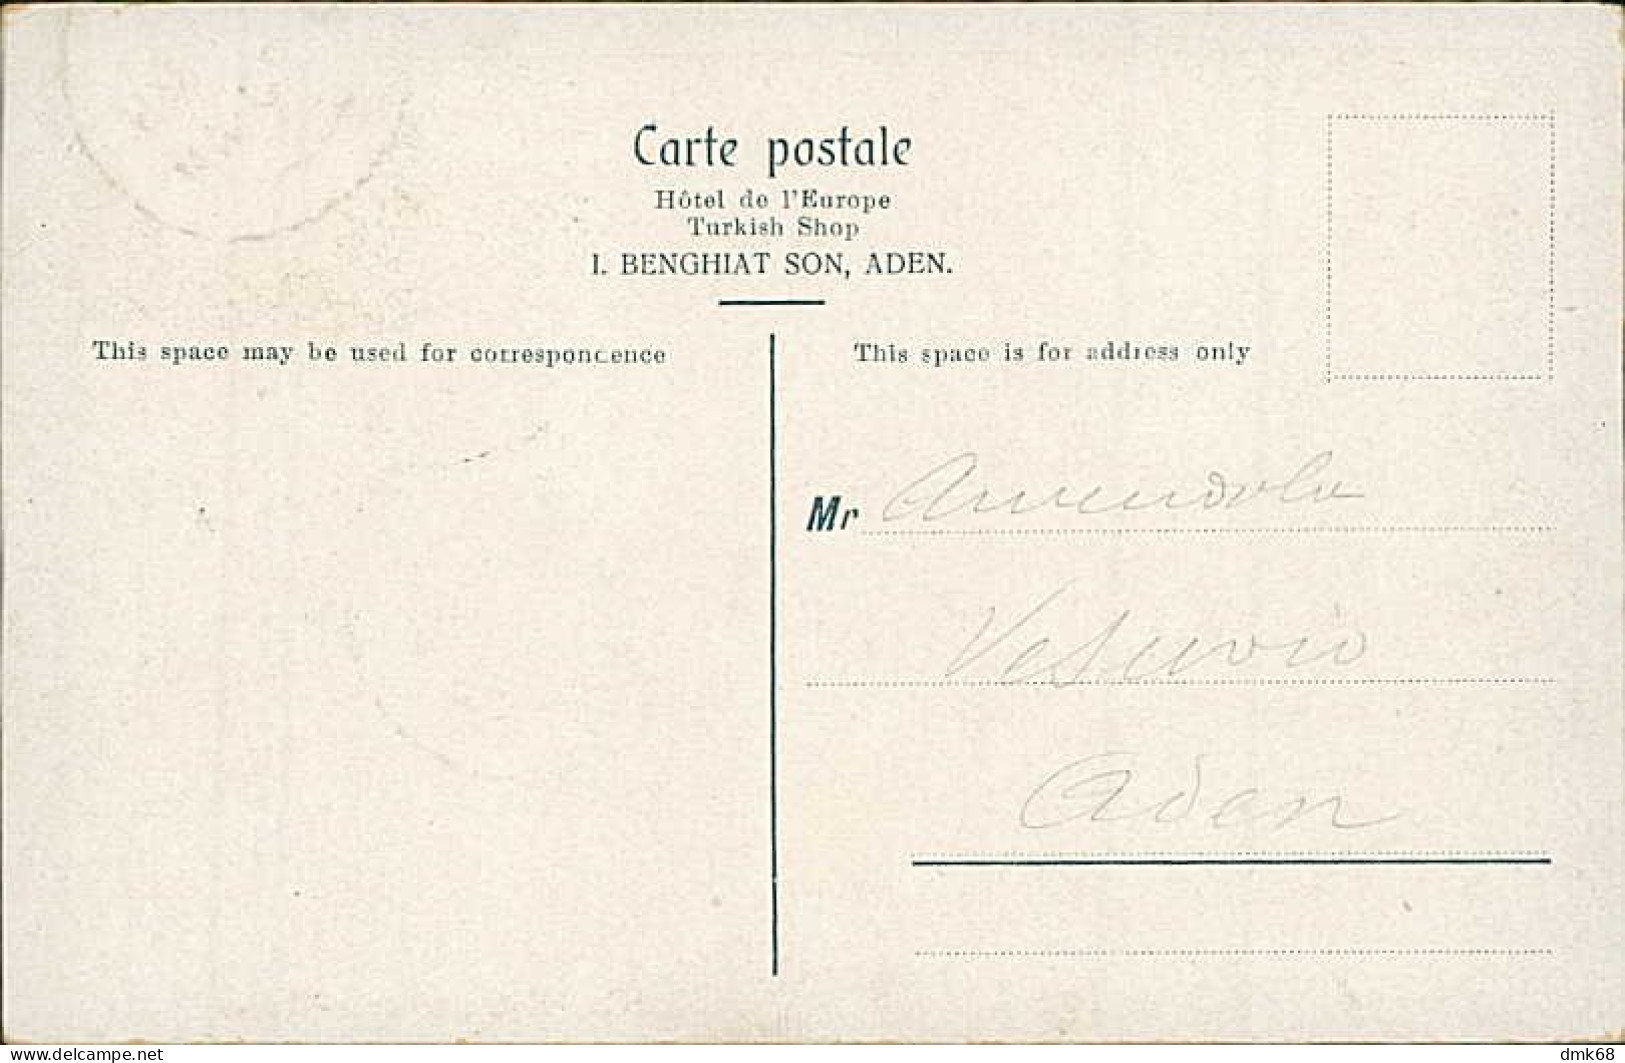 Carte postale
Hôtel de l'Europe
Turkish Shop
I. BENGHIAT SON, ADEN.
This space may be used for correspondence
This space is for address only
Mr Amendola
Vesuvio
Aden
www.delcampe.net
dmk68